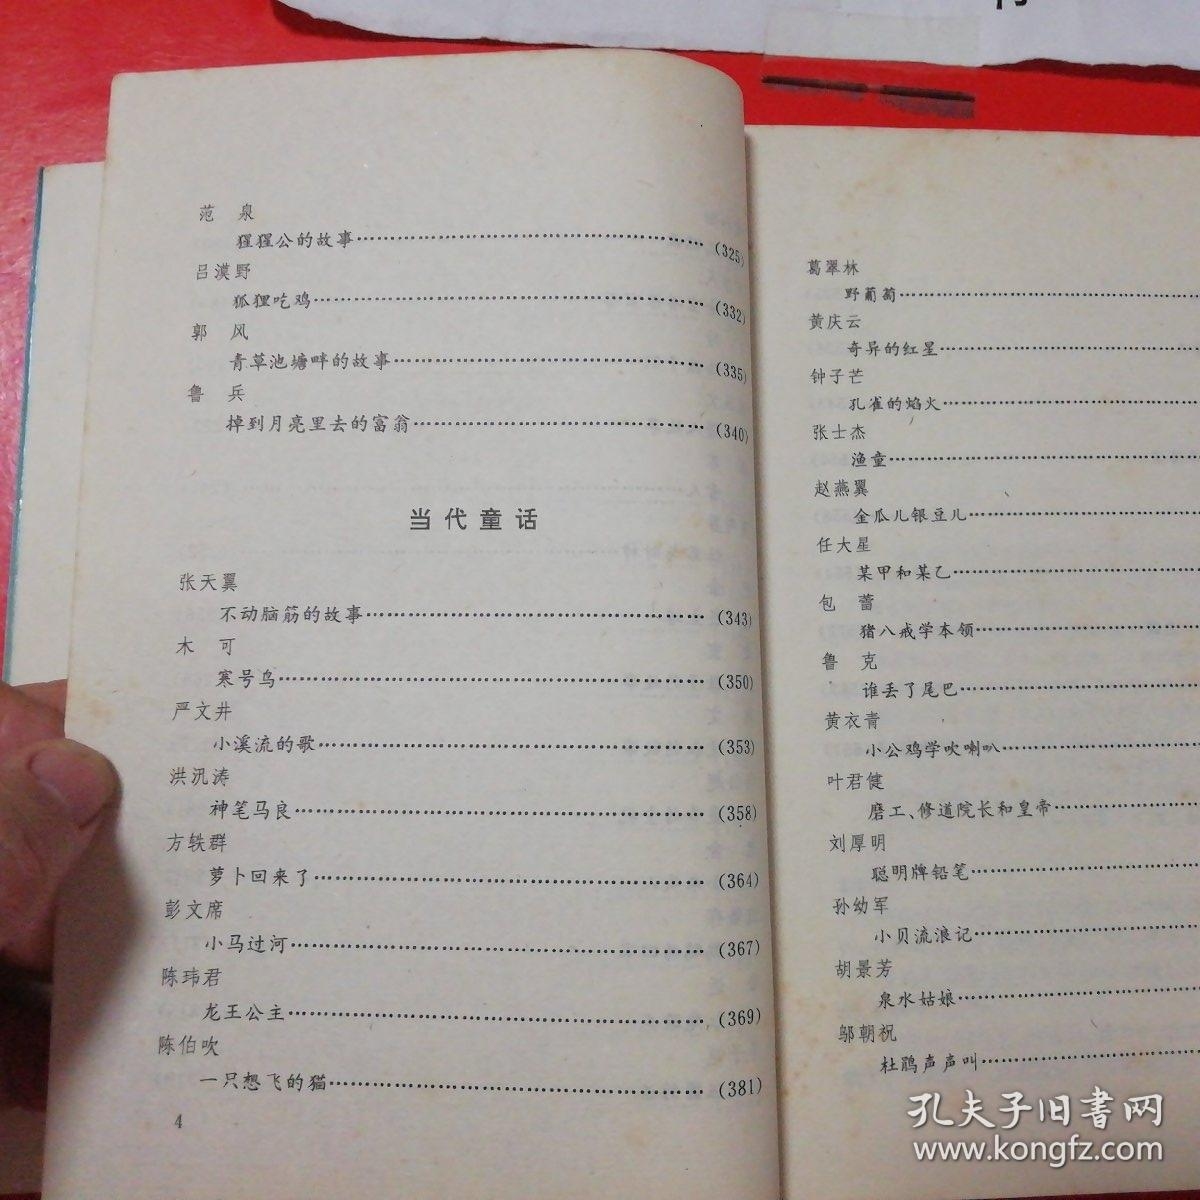 范　泉
猩猩公的故事……(325)
吕漠野
狐狸吃鸡……(332)
郭　风
青草池塘畔的故事……(335)
鲁　兵
掉到月亮里去的富翁……(340)
当代童话
张天翼
不动脑筋的故事……(343)
木　可
寒号鸟……(350)
严文井
小溪流的歌……(353)
洪汛涛
神笔马良……(358)
方轶群
萝卜回来了……(364)
彭文席
小马过河……(367)
陈玮君
龙王公主……(369)
陈伯吹
一只想飞的猫……(381)
4
葛翠林
野葡萄……
黄庆云
奇异的红星……
钟子芒
孔雀的焰火……
张士杰
渔童……
赵燕翼
金瓜儿银豆儿……
任大星
某甲和某乙……
包　蕾
猪八戒学本领……
鲁　克
谁丢了尾巴……
黄衣青
小公鸡学吹喇叭……
叶君健
磨工、修道院长和皇帝……
刘厚明
聪明牌铅笔……
孙幼军
小贝流浪记……
胡景芳
泉水姑娘……
邬朝祝
杜鹃声声叫……
孔夫子旧书网
www.kongfz.com